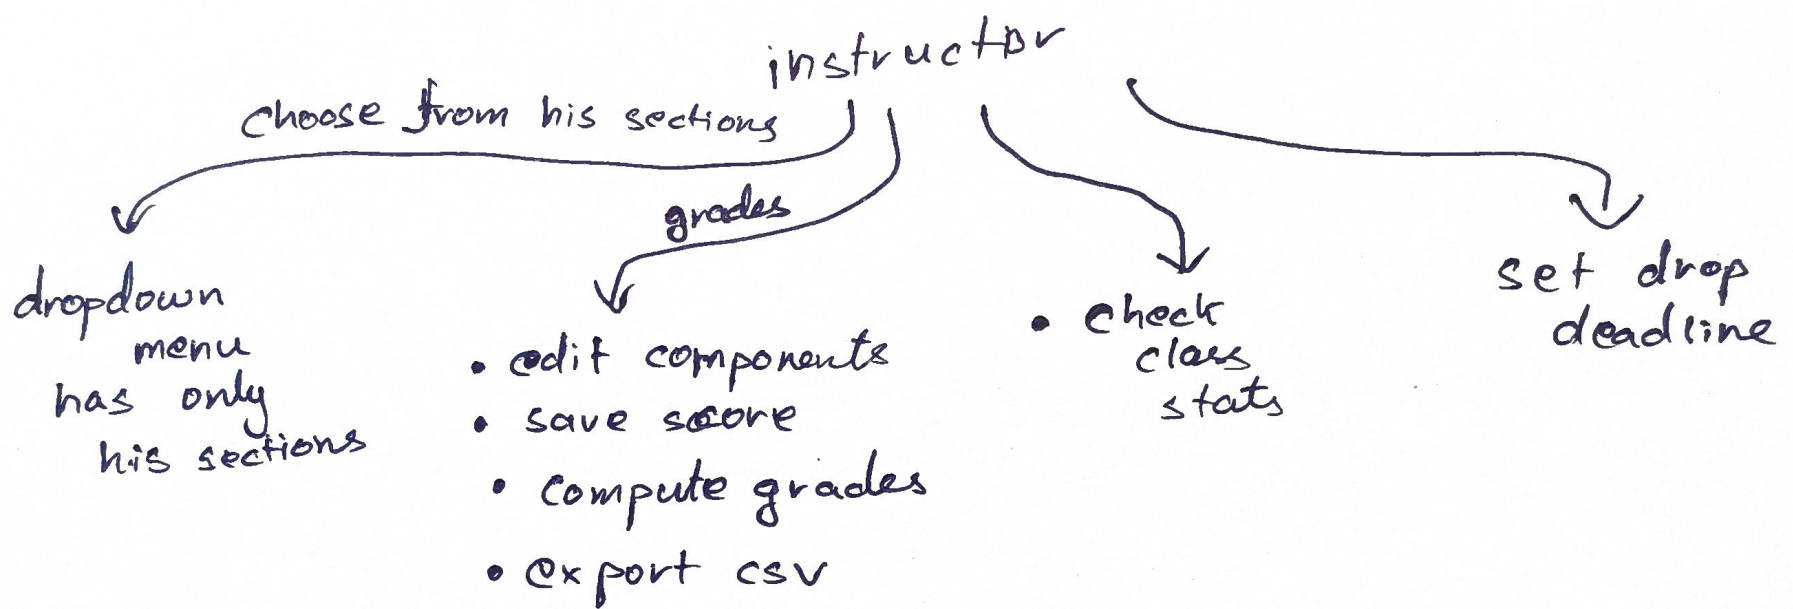 instructor
choose from his sections
grades
dropdown
menu
has only
his sections
• edit components
• save score
• compute grades
• export csv
• check
class
stats
set drop
deadline